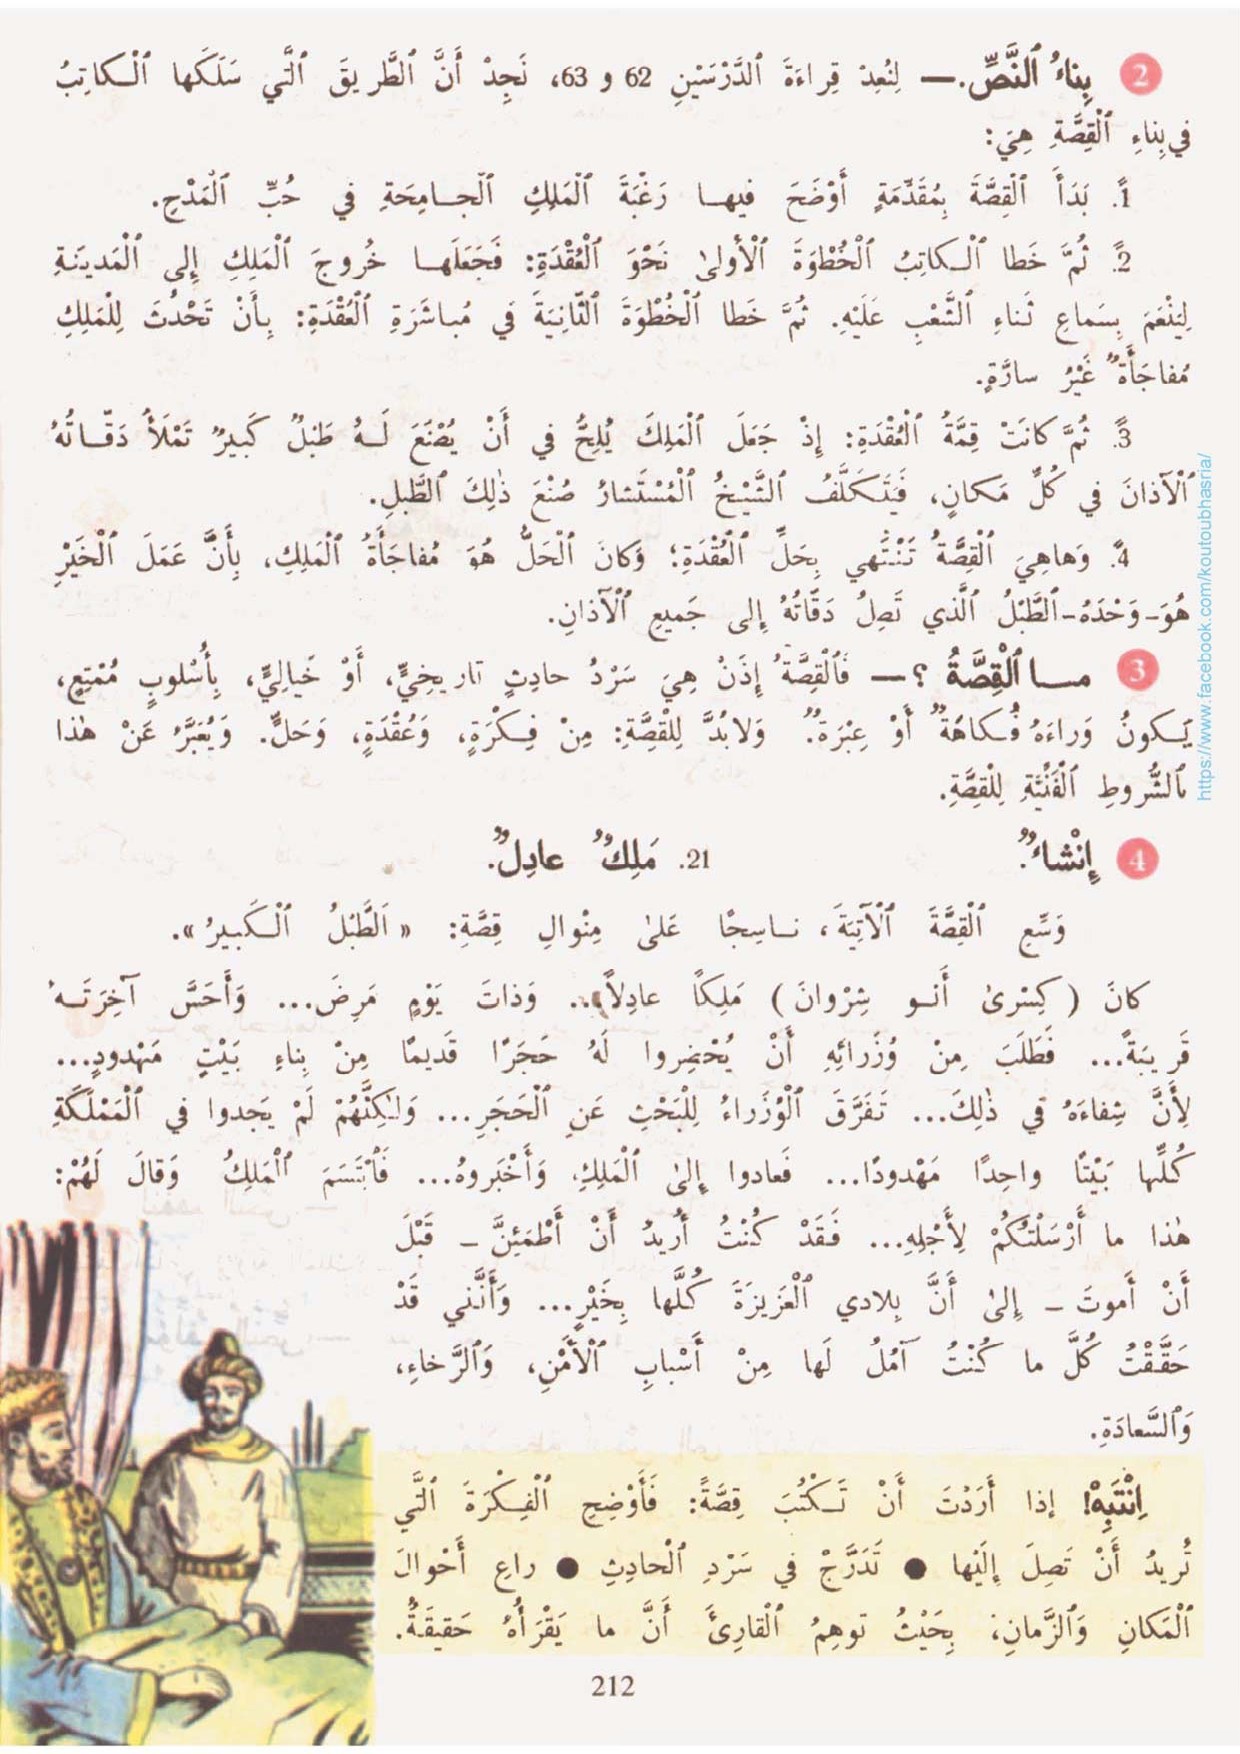 2 بِناءُ ٱلنَّصِّ. — لِنُعِدْ قِراءَةَ ٱلدَّرْسَيْنِ 62 و 63، نَجِدْ أَنَّ ٱلطَّريقَ ٱلَّتي سَلَكَها ٱلْكاتِبُ
في بِناءِ ٱلْقِصَّةِ هِيَ:
1. بَدَأَ ٱلْقِصَّةَ بِمُقَدِّمَةٍ أَوْضَحَ فيها رَغْبَةَ ٱلْمَلِكِ ٱلْجامِحَةِ في حُبِّ ٱلْمَدْحِ.
2. ثُمَّ خَطا ٱلْكاتِبُ ٱلْخُطْوَةَ ٱلْأولىٰ نَحْوَ ٱلْعُقْدَةِ: فَجَعَلَها خُروجَ ٱلْمَلِكِ إِلى ٱلْمَدينَةِ
لِيَنْعَمَ بِسَماعِ ثَناءِ ٱلشَّعْبِ عَلَيْهِ. ثُمَّ خَطا ٱلْخُطْوَةَ ٱلثّانِيَةَ في مُباشَرَةِ ٱلْعُقْدَةِ: بِأَنْ تَحْدُثَ لِلْمَلِكِ
مُفاجَأَةٌ غَيْرُ سارَّةٍ.
3. ثُمَّ كانَتْ قِمَّةُ ٱلْعُقْدَةِ: إِذْ جَعَلَ ٱلْمَلِكَ يُلِحُّ في أَنْ يُصْنَعَ لَهُ طَبْلٌ كَبيرٌ تَمْلَأُ دَقّاتُهُ
ٱلْآذانَ في كُلِّ مَكانٍ، فَيَتَكَلَّفُ ٱلشَّيْخُ ٱلْمُسْتَشارُ صُنْعَ ذٰلِكَ ٱلطَّبلِ.
4. وَهاهِيَ ٱلْقِصَّةُ تَنْتَهي بِحَلِّ ٱلْعُقْدَةِ؛ وَكانَ ٱلْحَلُّ هُوَ مُفاجَأَةُ ٱلْمَلِكِ، بِأَنَّ عَمَلَ ٱلْخَيْرِ
هُوَ-وَحْدَهُ-ٱلطَّبْلُ ٱلَّذي تَصِلُ دَقّاتُهُ إِلى جَميعِ ٱلْآذانِ.
3 مـا ٱلْقِصَّةُ ؟ — فَٱلْقِصَّةُ إِذَنْ هِيَ سَرْدُ حادِثٍ تاريخِيٍّ، أَوْ خَيالِيٍّ، بِأُسْلوبٍ مُمْتِعٍ،
يَكونُ وَراءَهُ فُكاهَةٌ أَوْ عِبْرَةٌ. وَلابُدَّ لِلْقِصَّةِ: مِنْ فِكْرَةٍ، وَعُقْدَةٍ، وَحَلٍّ. وَيُعَبَّرُ عَنْ هٰذا
بِالشُّروطِ ٱلْفَنِّيَّةِ لِلْقِصَّةِ.
4 إِنْشاءٌ. 21. مَلِكٌ عادِلٌ.
وَسِّعِ ٱلْقِصَّةَ ٱلْآتِيَةَ، ناسِجًا عَلىٰ مِنْوالِ قِصَّةِ: «اَلطَّبْلُ ٱلْكَبيرُ».
كانَ (كِسْرىٰ أَنو شِرْوانَ) مَلِكًا عادِلاً... وَذاتَ يَوْمٍ مَرِضَ... وَأَحَسَّ آخِرَتَهُ
قَريبَةً... فَطَلَبَ مِنْ وُزَرائِهِ أَنْ يُحْضِروا لَهُ حَجَرًا قَديمًا مِنْ بِناءِ بَيْتٍ مَهْدودٍ...
لِأَنَّ شِفاءَهُ في ذٰلِكَ... تَفَرَّقَ ٱلْوُزَراءُ لِلْبَحْثِ عَنِ ٱلْحَجَرِ... وَلٰكِنَّهُمْ لَمْ يَجِدوا في ٱلْمَمْلَكَةِ
كُلِّها بَيْتًا واحِدًا مَهْدودًا... فَعادوا إِلىٰ ٱلْمَلِكِ، وَأَخْبَروهُ... فَٱبْتَسَمَ ٱلْمَلِكُ وَقالَ لَهُمْ:
هٰذا ما أَرْسَلْتُكُمْ لِأَجْلِهِ... فَقَدْ كُنْتُ أُريدُ أَنْ أَطْمَئِنَّ - قَبْلَ
أَنْ أَموتَ - إِلىٰ أَنَّ بِلادي ٱلْعَزيزَةَ كُلَّها بِخَيْرٍ... وَأَنَّني قَدْ
حَقَّقْتُ كُلَّ ما كُنْتُ آمُلُ لَها مِنْ أَسْبابِ ٱلْأَمْنِ، وَٱلرَّخاءِ،
وَٱلسَّعادَةِ.
اِنْتَبِهْ! إِذا أَرَدْتَ أَنْ تَكْتُبَ قِصَّةً: فَأَوْضِحِ ٱلْفِكْرَةَ ٱلَّتي
تُريدُ أَنْ تَصِلَ إِلَيْها ● تَدَرَّجْ في سَرْدِ ٱلْحادِثِ ● راعِ أَحْوالَ
ٱلْمَكانِ وَٱلزَّمانِ؛ بِحَيْثُ توهِمُ ٱلْقارِئَ أَنَّ ما يَقْرَأُهُ حَقيقَةٌ.
212
https://www.facebook.com/koutoubhasria/